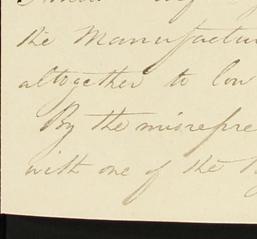 the Manufactur
altogether to low
By the misrepre
with one of the